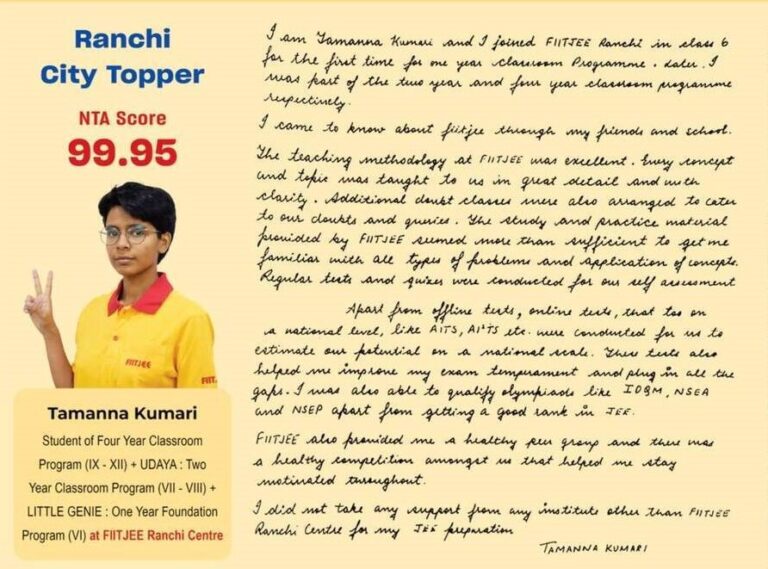 Ranchi
City Topper
NTA Score
99.95
FIITJEE
FIIT
Tamanna Kumari
Student of Four Year Classroom
Program (IX - XII) + UDAYA : Two
Year Classroom Program (VII - VIII) +
LITTLE GENIE : One Year Foundation
Program (VI) at FIITJEE Ranchi Centre
I am Tamanna Kumari and I joined FIITJEE Ranchi in class 6
for the first time for one year classroom Programme. Later. I
was part of the two year and four year classroom programme
respectively.
I came to know about fiitjee through my friends and school.
The teaching methodology at FIITJEE was excellent. Every concept
and topic was taught to us in great detail and with
clarity. Additional doubt classes were also arranged to cater
to our doubts and queries. The study and practice material
provided by FIITJEE seemed more than sufficient to get me
familiar with all types of problems and application of concepts.
Regular tests and quizes were conducted for our self assessment
Apart from offline tests, online tests, that too on
a national level, like AITS, AI²TS etc. were conducted for us to
estimate our potential on a national scale. These tests also
helped me improve my exam temperament and plug in all the
gaps. I was also able to qualify olympiads like IOQM, NSEA
and NSEP apart from getting a good rank in JEE.
FIITJEE also provided me a healthy peer group and there was
a healthy competition amongst us that helped me stay
motivated throughout.
I did not take any support from any institute other than FIITJEE
Ranchi Centre for my JEE preparation
TAMANNA KUMARI